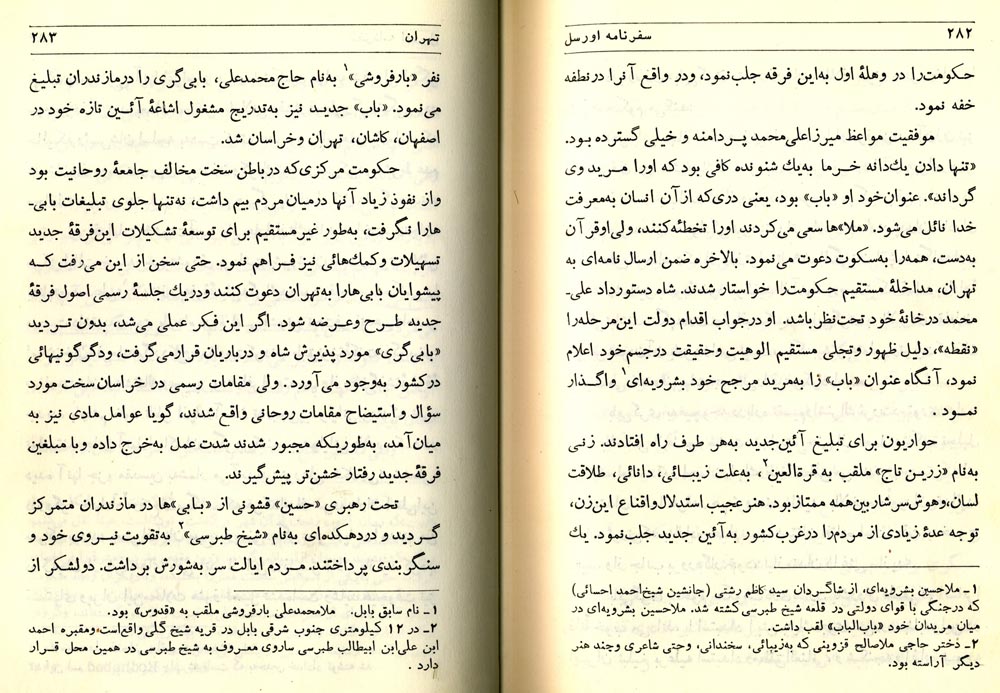 ۲۸۲
سفرنامه اورسل
حکومت‌را در وهلهٔ اول به‌این فرقه جلب‌نمود، ودر واقع آنرا درنطفه
خفه نمود.
موفقیت مواعظ میرزاعلی‌محمد پردامنه و خیلی گسترده بود.
«تنها دادن یك‌دانه خرما به‌یك شنونده کافی بود که اورا مرید وی
گرداند». عنوان‌خود او «باب» بود، یعنی دری‌که ازآن انسان به‌معرفت
خدا نائل می‌شود. «ملا»ها سعی می‌کردند اورا تخطئه‌کنند، ولی‌اوقرآن
به‌دست، همه‌را به‌سکوت دعوت می‌نمود. بالاخره ضمن ارسال نامه‌ای به
تهران، مداخلهٔ مستقیم حکومت‌را خواستار شدند. شاه دستورداد علی‌ـ
محمد درخانهٔ خود تحت‌نظر باشد. او درجواب اقدام دولت این‌مرحله‌را
«نقطه»، دلیل ظهور وتجلی مستقیم الوهیت وحقیقت درجسم‌خود اعلام
نمود، آنگاه عنوان «باب» را به‌مرید مرجح خود بشرویه‌ای۱ واگذار
نمود.
حواریون برای تبلیغ آئین‌جدید به‌هر طرف راه افتادند. زنی
به‌نام «زرین تاج» ملقب به قرةالعین۲، به‌علت زیبائی، دانائی، طلاقت
لسان، وهوش سرشار بین‌همه ممتازبود. هنرعجیب استدلال‌واقناع این‌زن،
توجه عدهٔ زیادی از مردم‌را در غرب‌کشور به‌آئین جدید جلب‌نمود. یك
۱ـ ملاحسین بشرویه‌ای، از شاگردان سید کاظم رشتی (جانشین شیخ‌احمد احسائی)
که درجنگی با قوای دولتی در قلعه شیخ طبرسی‌کشته شد. ملاحسین بشرویه‌ای در
میان مریدان خود «باب‌الباب» لقب داشت.
۲ـ دختر حاجی ملاصالح قزوینی که به‌زیبائی، سخندانی، وحتی شاعری وچند هنر
دیگر آراسته بود.
تهران
۲۸۳
نفر «بارفروشی»۱ به‌نام حاج محمدعلی، بابی‌گری را درمازندران تبلیغ
می‌نمود. «باب» جدید نیز به‌تدریج مشغول اشاعهٔ آئین تازه خود در
اصفهان، کاشان، تهران وخراسان شد.
حکومت مرکزی‌که درباطن سخت مخالف جامعهٔ روحانیت بود
واز نفوذ زیاد آنها درمیان‌مردم بیم داشت، نه‌تنها جلوی تبلیغات بابی‌ـ
هارا نگرفت، به‌طور غیرمستقیم برای توسعهٔ تشکیلات این‌فرقهٔ جدید
تسهیلات وکمك‌هائی نیز فراهم نمود. حتی سخن از این می‌رفت که
پیشوایان بابی‌هارا به‌تهران دعوت کنند ودریك جلسهٔ رسمی اصول فرقهٔ
جدید طرح وعرضه شود. اگر این فکر عملی می‌شد، بدون تردید
«بابی‌گری» مورد پذیرش شاه و درباریان قرارمی‌گرفت، ودگرگونیهائی
درکشور به‌وجود می‌آورد. ولی مقامات رسمی در خراسان سخت مورد
سؤال و استیضاح مقامات روحانی واقع شدند، گویا عوامل مادی نیز به
میان‌آمد، به‌طوریکه مجبور شدند شدت عمل به‌خرج داده وبا مبلغین
فرقهٔ جدید رفتار خشن‌تر پیش‌گیرند.
تحت رهبری «حسین» قشونی از «بابی»ها در مازندران متمرکز
گردید و دردهکده‌ای به‌نام «شیخ طبرسی»۲ به‌تقویت نیروی خود و
سنگربندی پرداختند. مردم ایالت سر به‌شورش برداشت. دولشکر از
۱ـ نام سابق بابل. ملامحمدعلی بارفروشی ملقب به «قدوس» بود.
۲ـ در ۱۲ کیلومتری جنوب شرقی بابل در قریه شیخ گلی واقع‌است‌ومقبره احمد
ابن علی‌ابن ابیطالب طبرسی ساروی معروف به شیخ طبرسی در همین محل قرار
دارد.